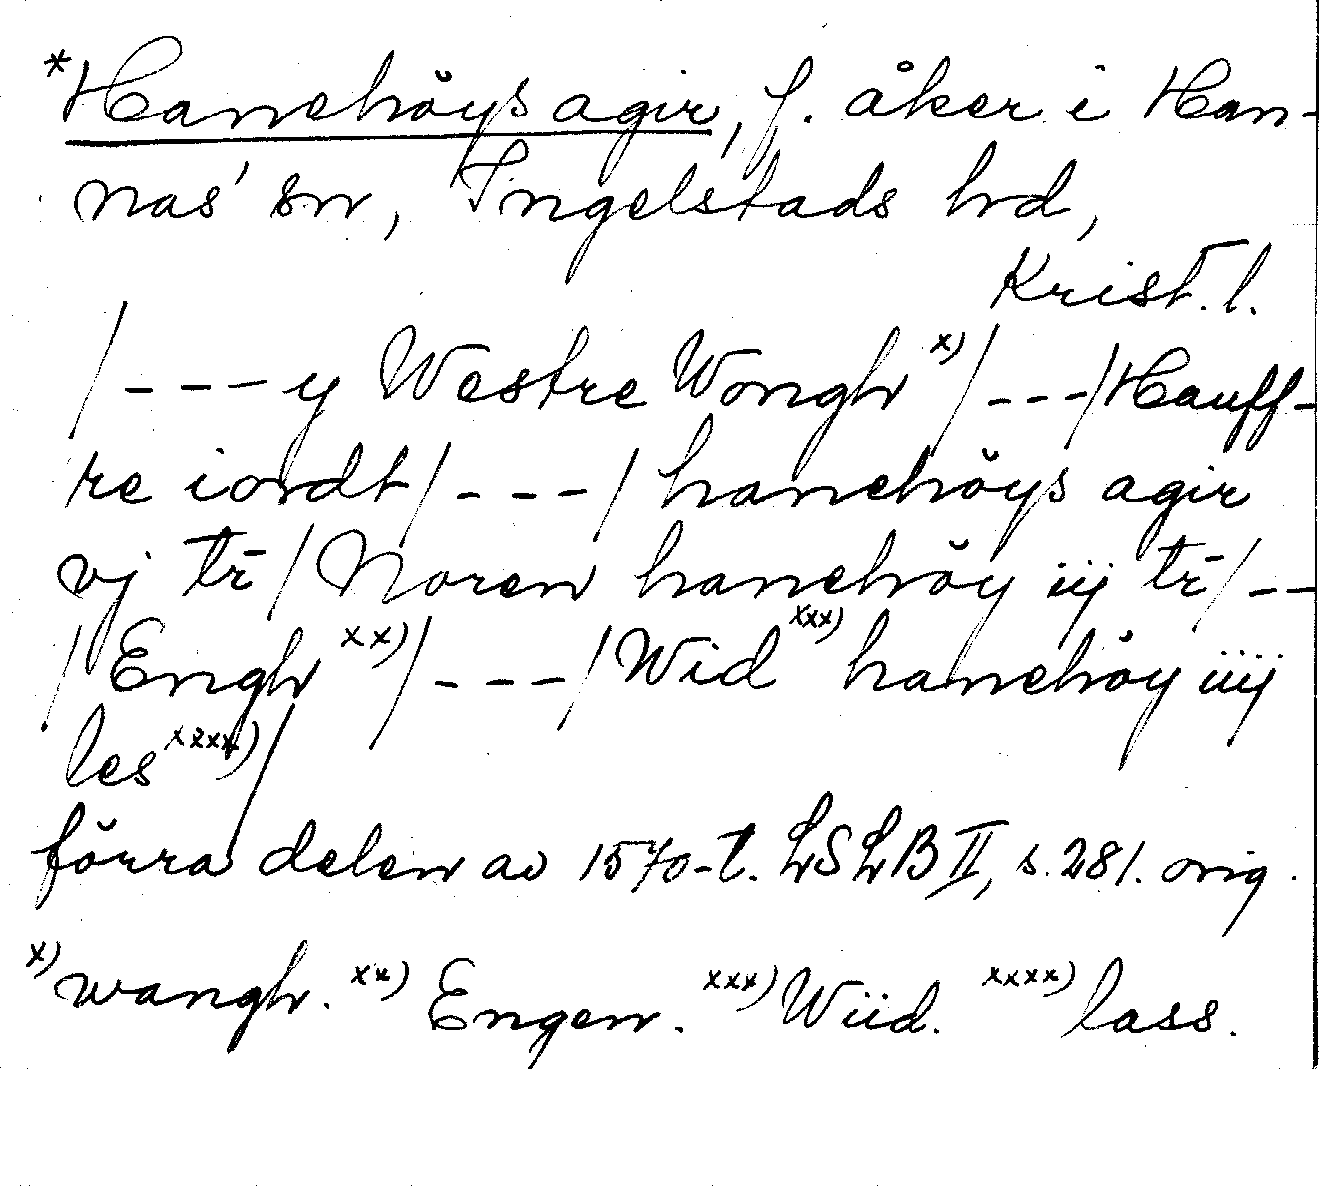 *Hanehöys agir, f. åker i Han-
nas' sn, Ingelstads hd,
Krist. l.
/---y Westre Wongh x)/---/Hauff-
re iordt/---/ hanehöys agir
vj tr̄/Noren hanehöy iij tr̄/--
/Engh xx)/---/Wid xxx) hanehöy iiij
les xxxx)/
förra delen av 1570-t. LSLB II, s. 281. orig.
x) wangh. xx) Engen. xxx) Wiid. xxxx) lass.